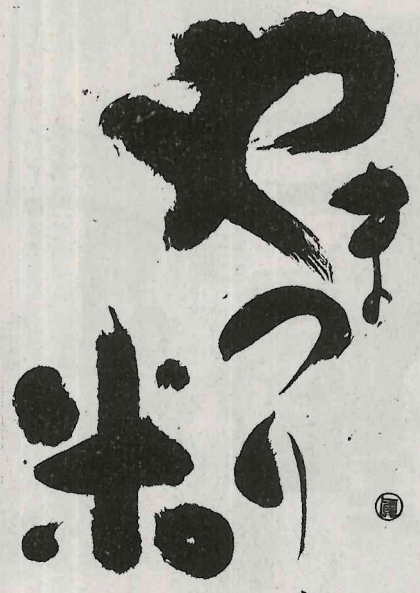 やまつり
米